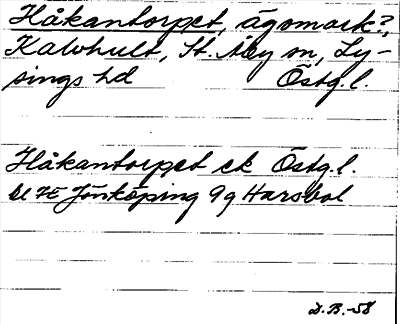 Håkantorpet, ägomark?,
Kalvhult, St. Åby sn, Ly-
sings hd Östg. l.
Håkantorpet ek Östg. l.
bl 7E Jönköping 9g Harsbol
D.B.-58